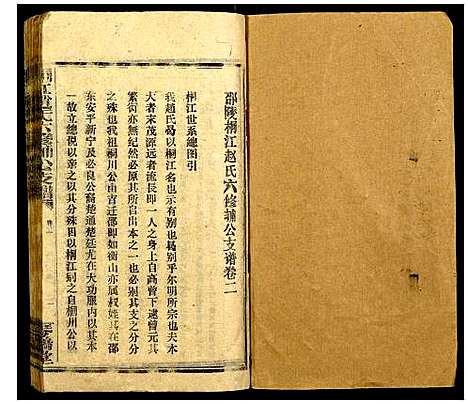 邵陵桐江赵氏六修辅公支谱卷二
桐江世系總图引
我趙氏曷以桐江名也示有别也曷别乎尔明所宗也夫木
大者末茂源远者流長即一人之身上自高曾下逮曾元其
繁衍亦無纪然必原其所自出本之一也必别其支之分
之殊也我祖桐川公由吉迁邵即如衡山亦属叔姪其在邵
东安平新宁及必良公裔楚通楚廷尤在大功服内以其本
一故立總说以亲之以其分殊因以桐江别之自桐川公以
六修辅公支譜